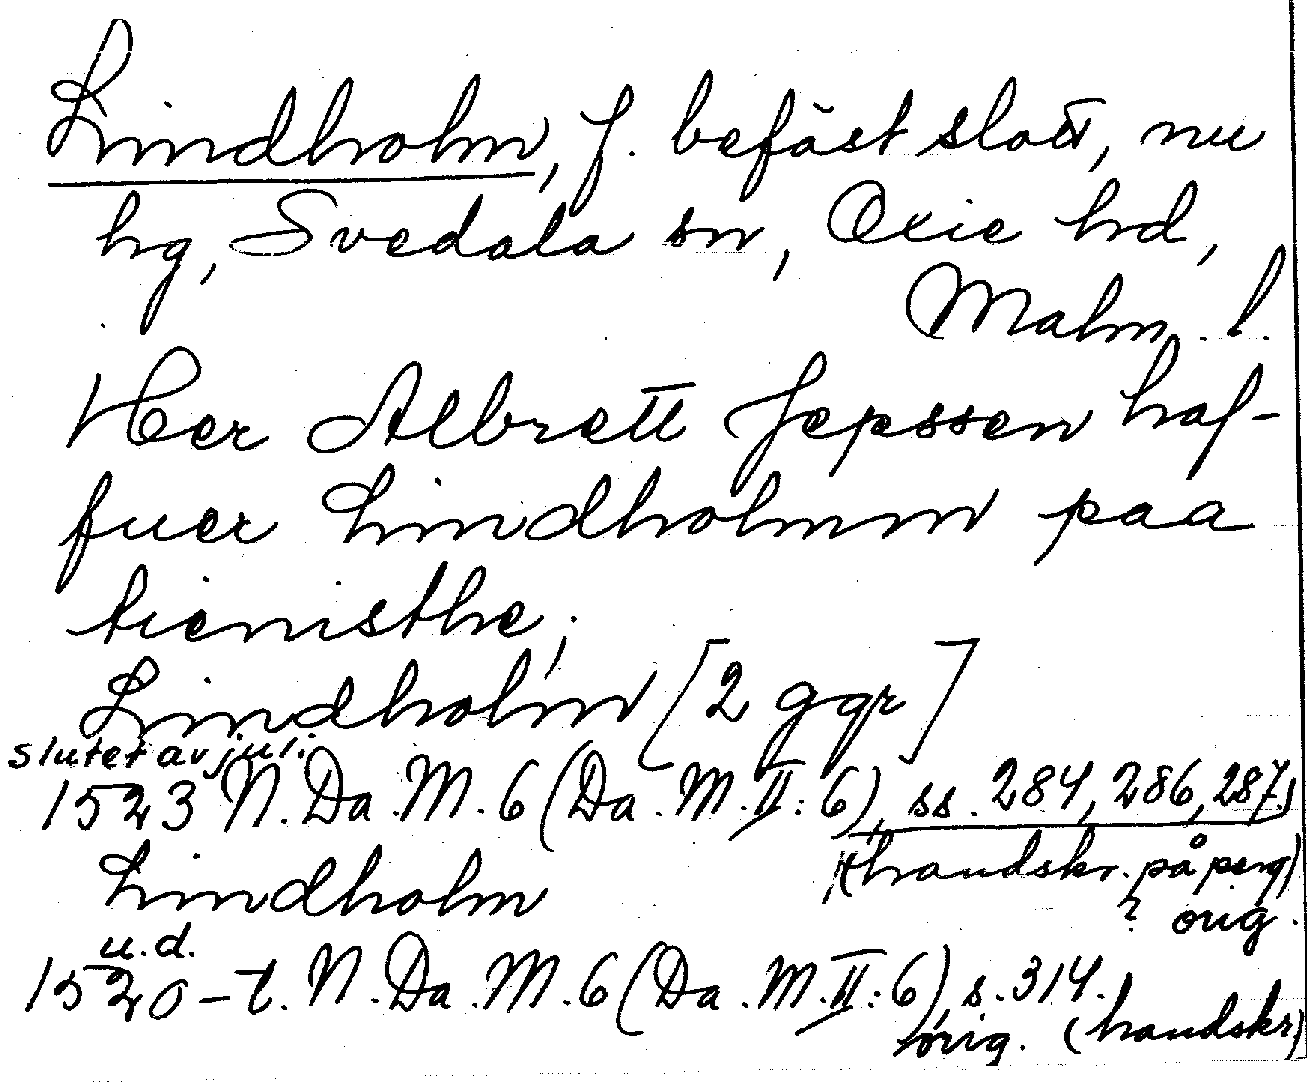 Lindholm, f. befäst slott, nu
hg, Svedala sn, Oxie hd,
Malm. l.
Her Albrett Jepssen haf-
fuer Lindholmm paa
tienisthe,;
Lindholm [2 ggr]
slutet av juli
1523 N. Da. M. 6 (Da. M. II: 6), ss. 284, 286, 287.
(handskr. på perg)
? orig.
Lindholm
u.d.
1520-t. N. Da. M. 6 (Da. M. II: 6), s. 314.
orig. (handskr)